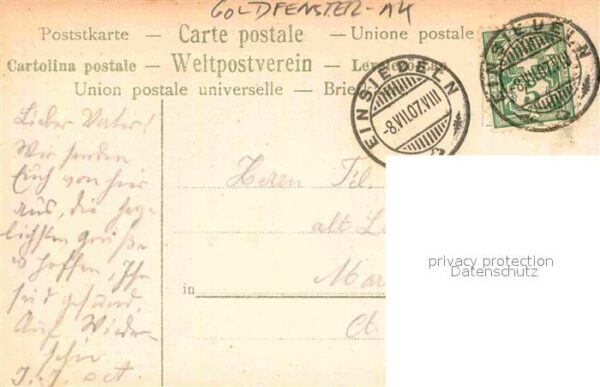 GOLDFENSTER-AK
Postskarte – Carte postale – Unione postale
Cartolina postale – Weltpostverein –
Union postale universelle –
EINSIEDELN
-8.VII.07.VII
EINSIEDELN
-8.VII.07.VII
5
Lieber Vater!
Wir senden
Euch von hier
aus, die herz-
lichsten Grüße
u hoffen, Ihr
seid gesund,
Auf Wieder-
sehn
Herrn
alt
in
Ct.
privacy protection
Datenschutz